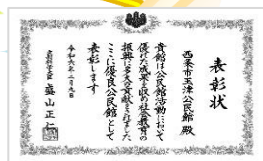 表彰状
西条市玉津公民館 殿
貴館は公民館活動において
優れた成果を収め社会教育の
振興に多大な貢献をされました
ここに優良公民館として
表彰します
令和六年三月九日
文部科学大臣 盛山正仁